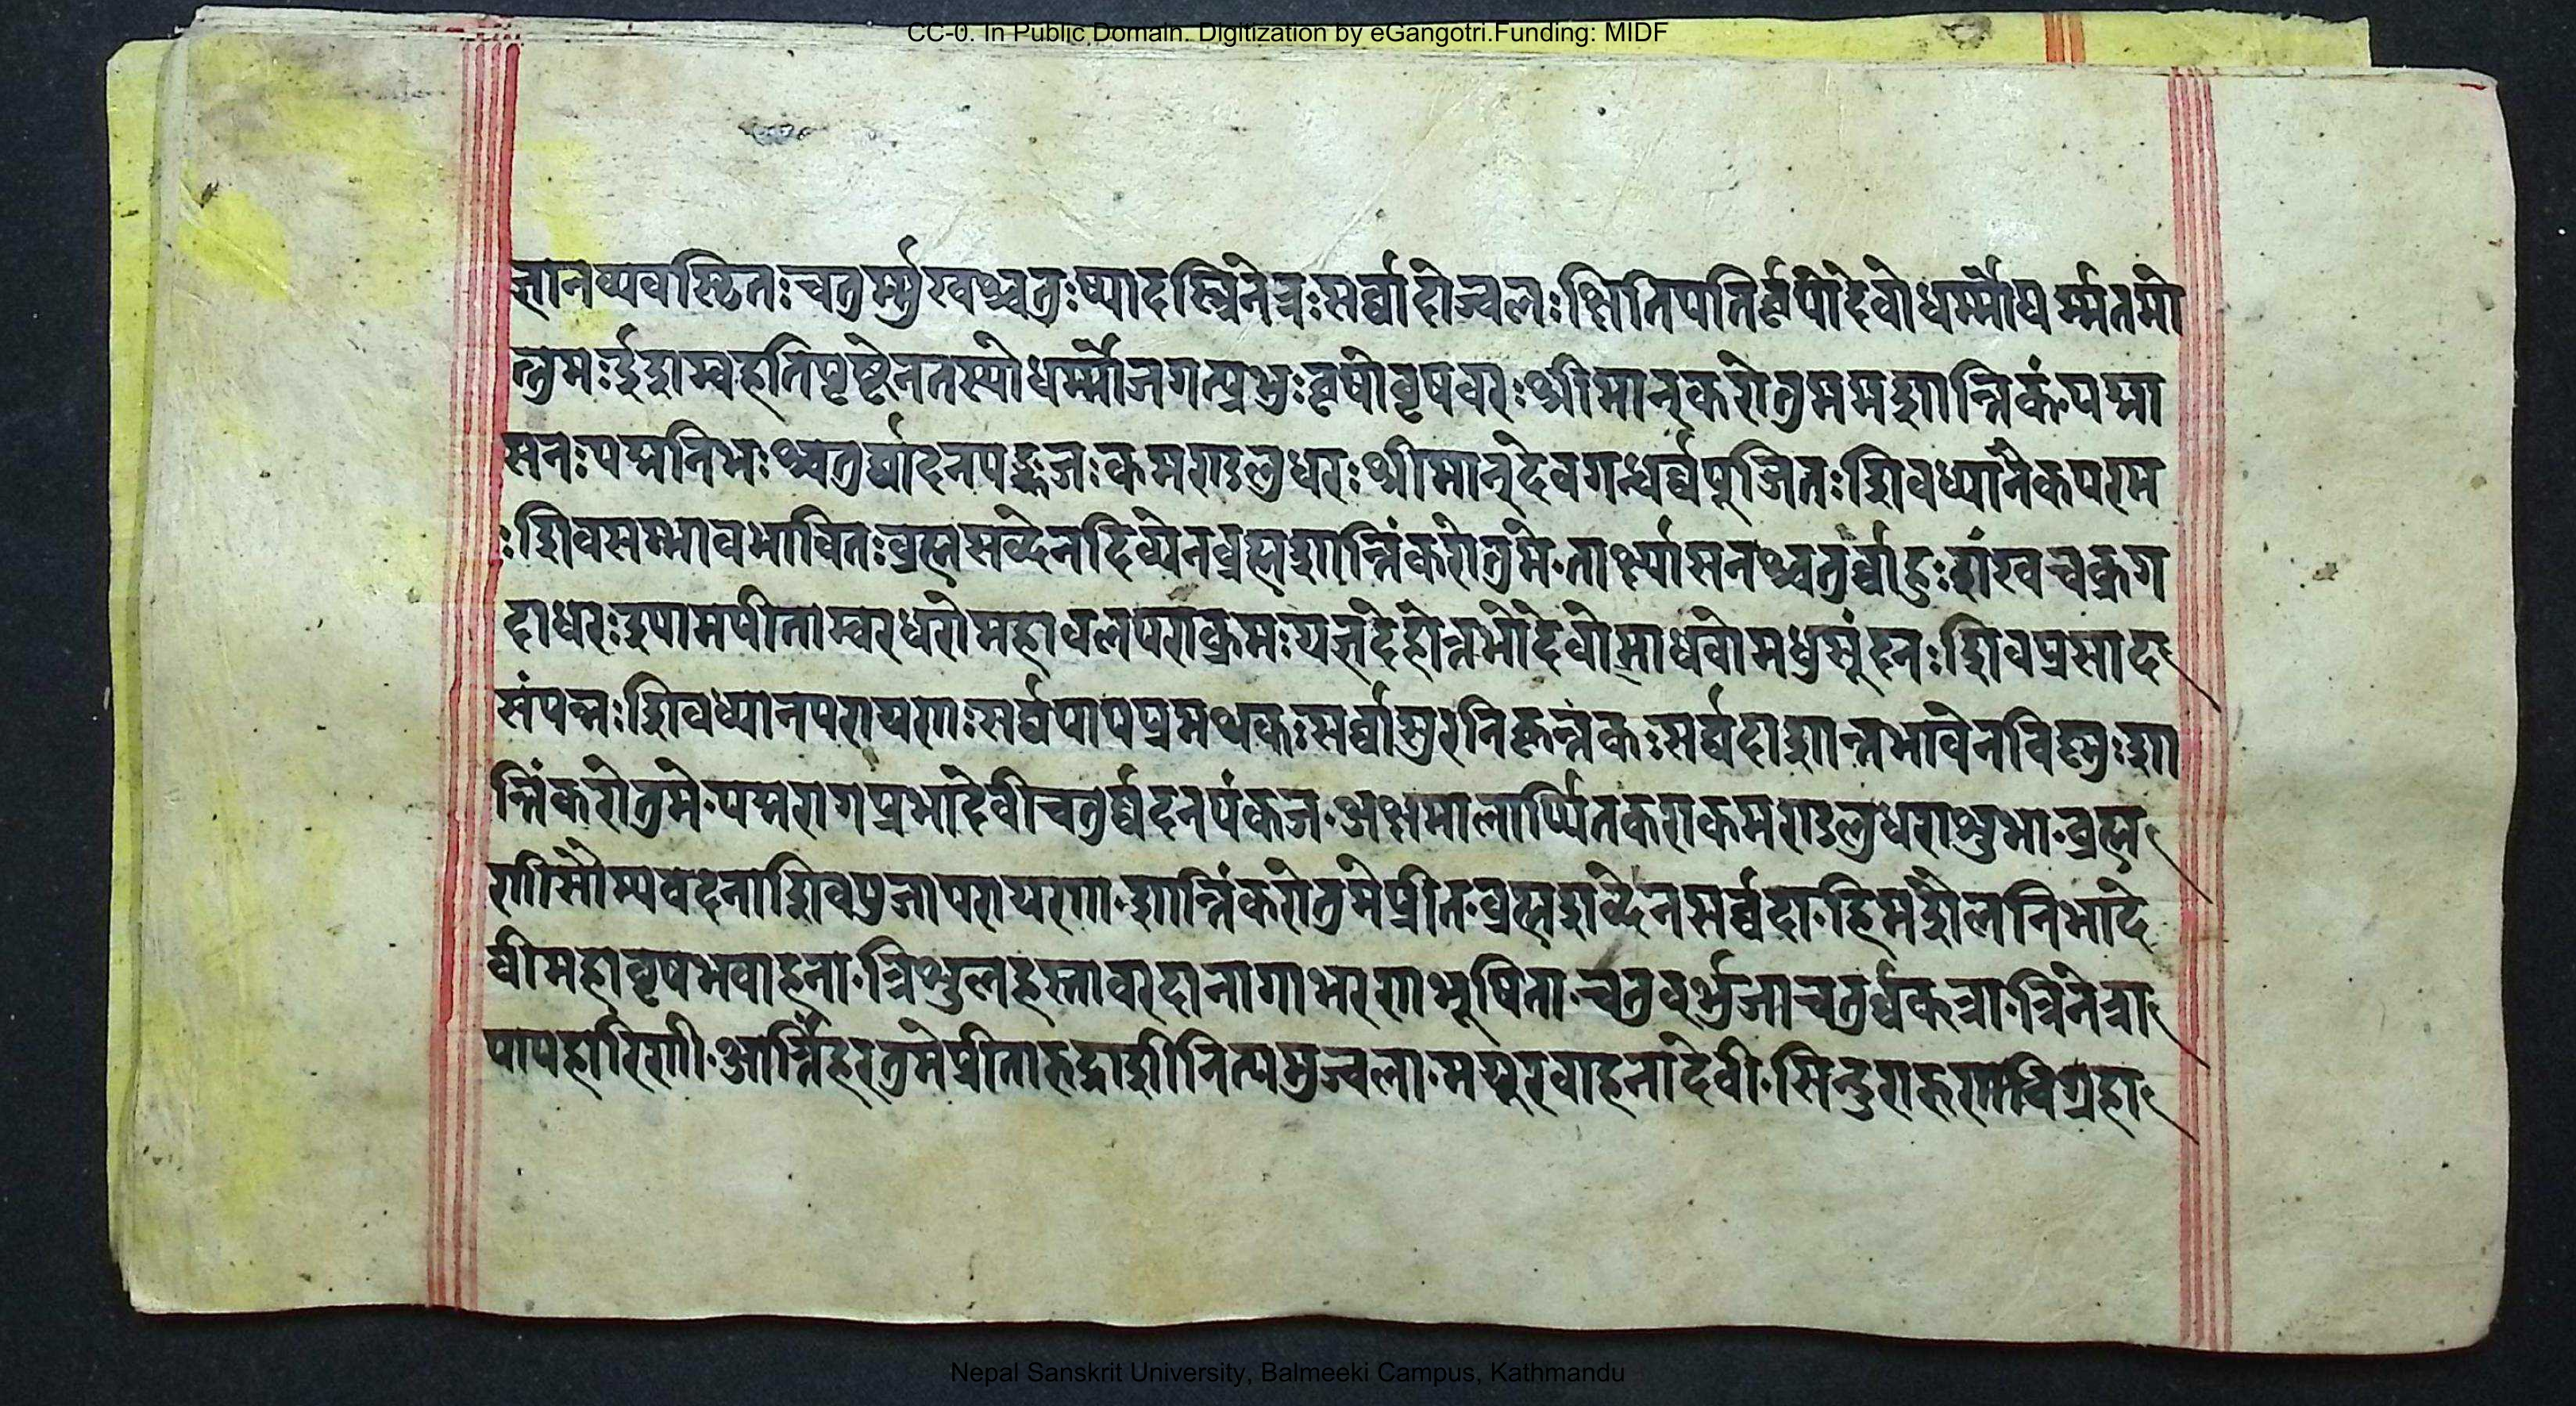 CC-0. In Public Domain. Digitization by eGangotri.Funding: MIDF
ज्ञानव्यवस्थितः चतुर्म्मुखश्चतुःष्पादस्त्रिनेत्रः सर्व्वादोज्वलः क्षितिपतिर्वृषोदेवोधर्म्मोधर्म्मतमो
त्तमः र्द्ददाम्वहतिपृष्टेनतस्योधर्म्मोजगत्प्रभुः वृषोवृषवरः श्रीमान्करोतुममशान्तिकं पद्मा
सनः पद्मनिभः श्चतुर्व्वादनपङ्कजः कमण्डलुधरः श्रीमान्देवगन्धर्व्वपूजितः शिवध्यानैकपरम
ः शिवसद्भावभावितः ब्रह्मसव्देनदिव्येनब्रह्मशान्तिंकरोतुमे॰तार्क्ष्यासनश्चतुर्व्वाहुः शंखचक्रग
दाधरः श्यामपीताम्वरधरोमहावलपराक्रमः यज्ञदेहोत्तमोदेवोमाधवोमधुसूंदनः शिवप्रसाद
संपन्नः शिवध्यानपरायणः सर्व्वपापप्रमथकः सर्व्वासुरनिकृन्तंकः सर्व्वदाशान्तभावेनविष्णुः शा
न्तिंकरोतुमे॰पद्मरागप्रभादेवीचतुर्व्वदनपंकज॰अक्षमालार्प्पितकराकमण्डलुधराशुभा॰ब्रह्म
णीसौम्यवदनाशिवपुजापरायणा॰शान्तिंकरोतुमेप्रीत॰ब्रह्मशव्देनसर्व्वदा॰हिमशैलनिभादे
वीमहावृषभवाहना॰त्रिशुलहस्तावरदानागाभरणभूषिता॰चतुवर्भुजाचतुर्व्वक्त्रा॰त्रिनेत्रा
पापहारिणी॰आर्त्तिंहरतुमेप्रीतारुद्राशीनित्यमुज्वला॰मयूरवाहनादेवी॰सिन्दुरारुणविग्रहा
Nepal Sanskrit University, Balmeeki Campus, Kathmandu